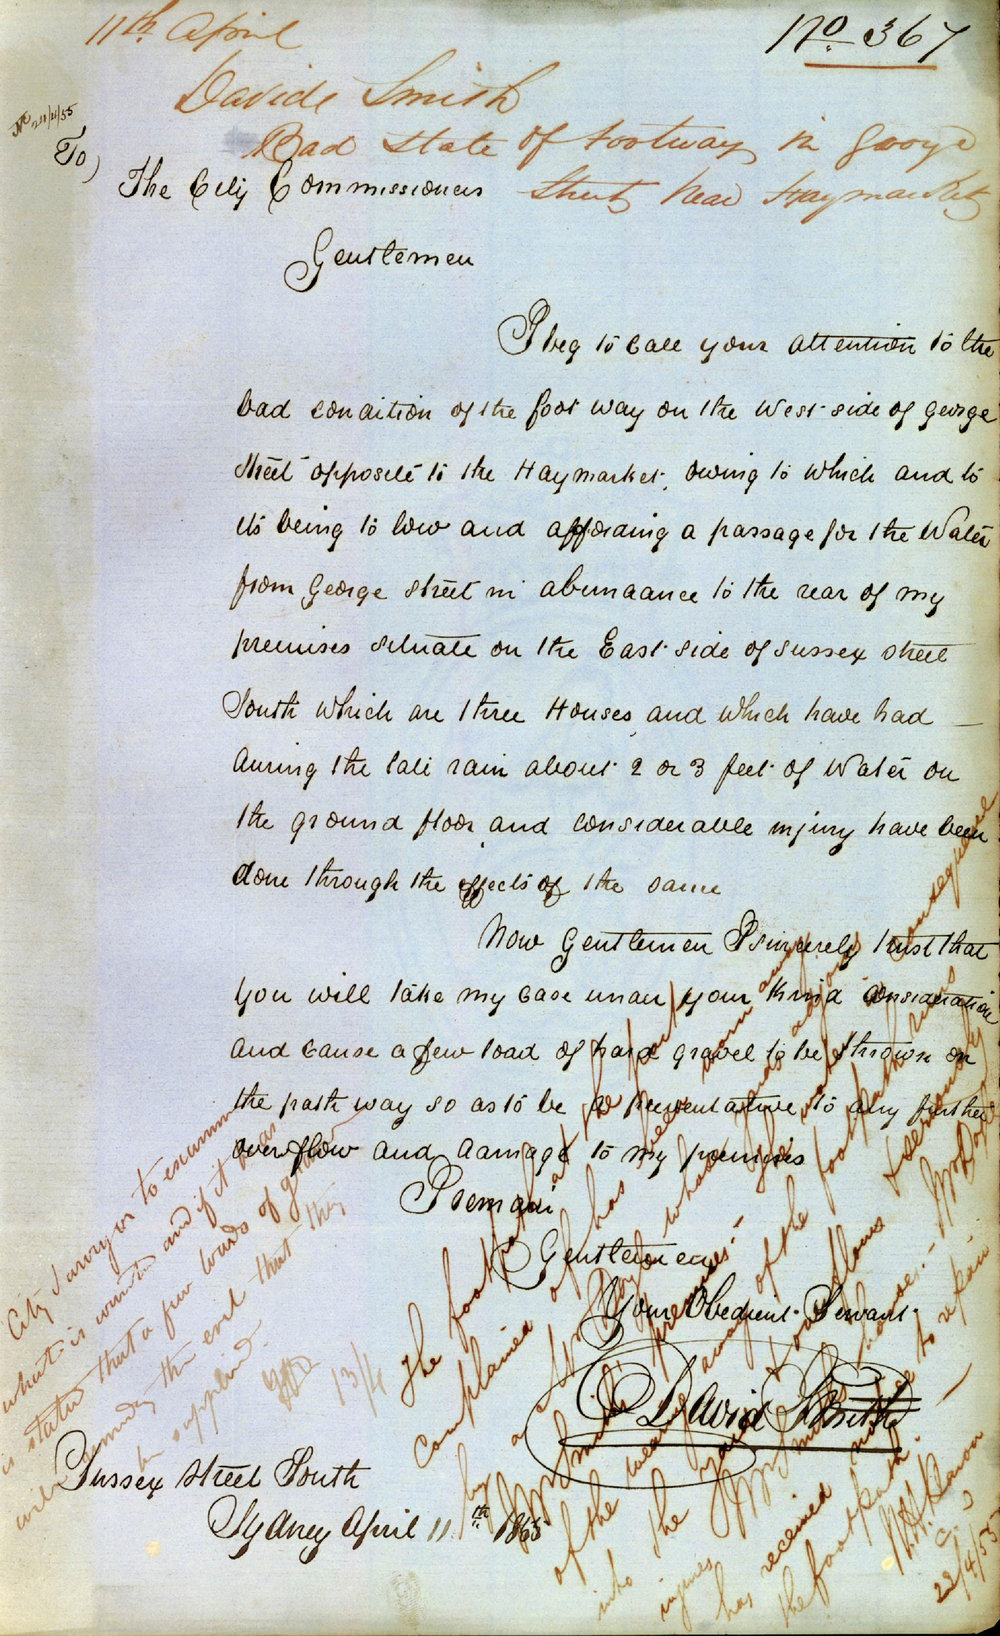 11th April
No 367
Davide Smith
Bad State of footway in George
Street near Haymarket
24/4/55
To)
The City Commissioners
Gentlemen
I beg to call your attention to the
bad condition of the foot way on the West side of George
Street opposite to the Haymarket, owing to which and to
its being to low and affording a passage for the Water
from George Street in abundance to the rear of my
premises situate on the East side of Sussex street
South which are three Houses, and which have had
during the late rain about 2 or 3 feet of Water on
the ground floor, and considerable injury have been
done through the effects of the same
Now Gentlemen I sincerely trust that
you will take my case under your kind consideration
and cause a few load of hard gravel to be thrown on
the path way so as to be a preventative to any further
overflow and damage to my premises
I remain
Gentlemen
Your Obedient Servant
David Smith
Sussex Street South
Sydney April 11th 1855
City Surveyor to examine
what is wanted and if it
is stated that a few loads of
will remedy the evil that they
be applied.
13/4
The footpath at
complained of has been worn away
by a Mr Doyle who
Mr Smiths premises.
of the wearing away of the footpath
into the yard & overflows
injures Mr Smiths houses. Mr Doyle
has received notice to repair
the footpath.
22/4/55